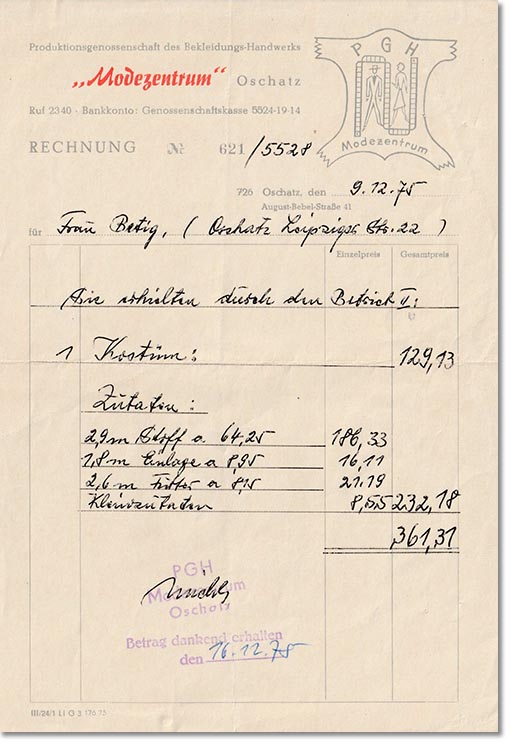 Produktionsgenossenschaft des Bekleidungs-Handwerks
„Modezentrum" Oschatz
Ruf 2340 · Bankkonto: Genossenschaftskasse 5524-19-14
PGH
Modezentrum
RECHNUNG № 621/5528
726 Oschatz, den 9.12.75
August-Bebel-Straße 41
für Frau Betig, (Oschatz Leipziger Str. 22)
Einzelpreis Gesamtpreis
Sie erhielten durch den Betrieb II:
1 Kostüm: 129,13
Zutaten:
2,9 m Stoff a 64,25 186,33
1,8 m Einlage a 8,95 16,11
2,6 m Futter a 8,15 21.19
Kleinzutaten 8,55 232,18
361,31
PGH
Modezentrum
Oschatz
Betrag dankend erhalten
den 16.12.75
III/24/1 Li G 3 176 73